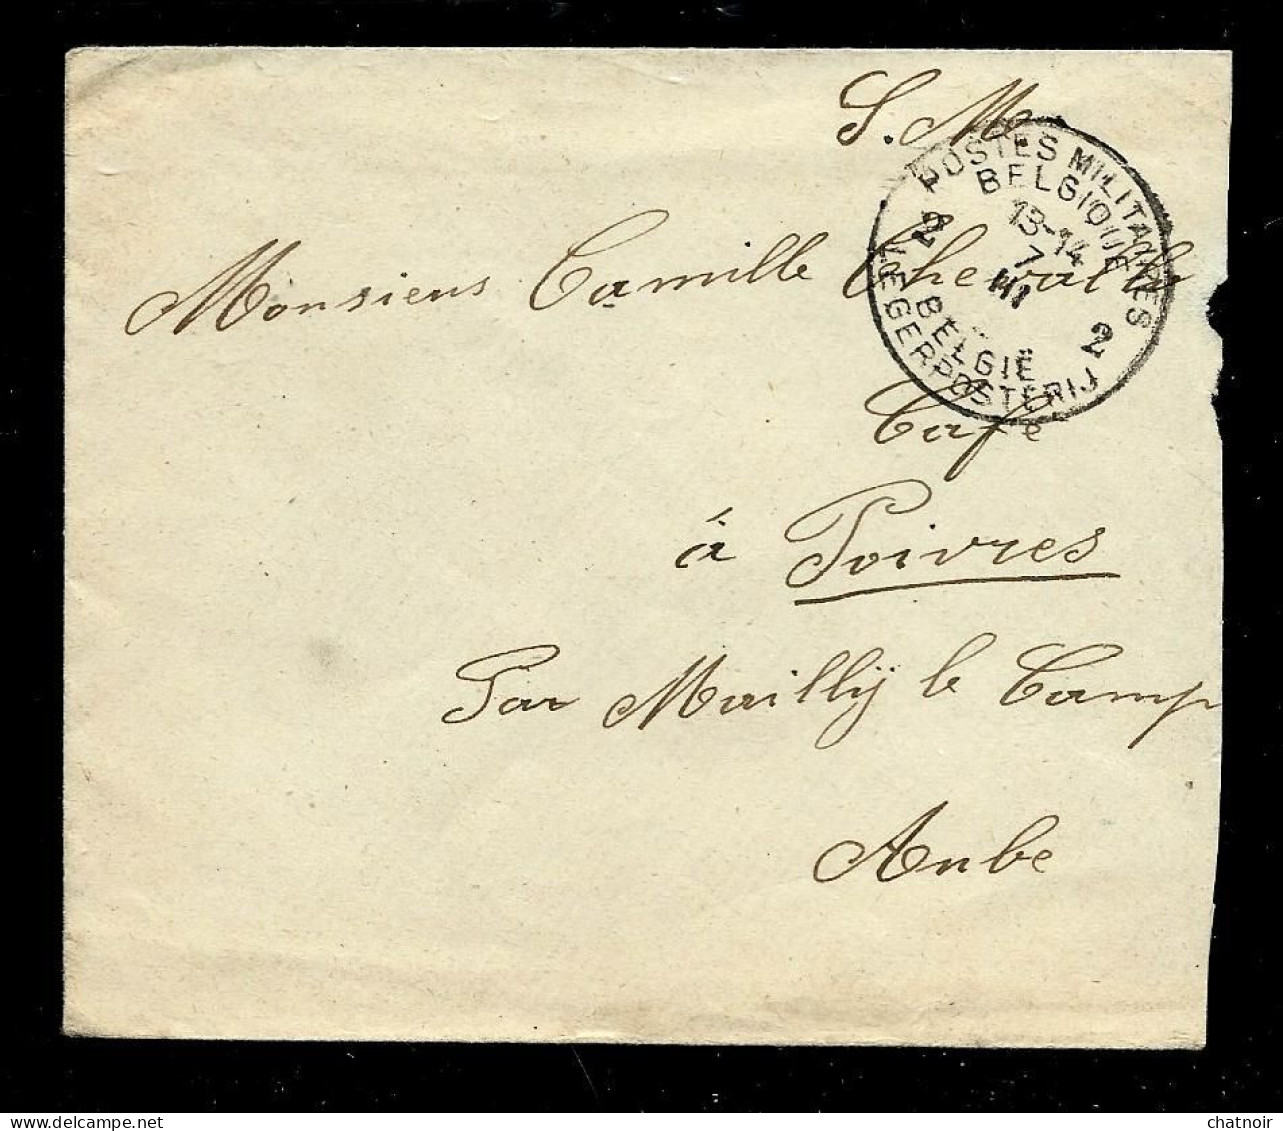 S. M.
POSTES MILITAIRES
BELGIQUE
13-14
7
III
2 2
BELGIË
LEGERPOSTERIJ
Monsieur Camille Chevallé
Café
à Poivres
Par Maillÿ le Camp
Aube
chatnoir / delcampe.net